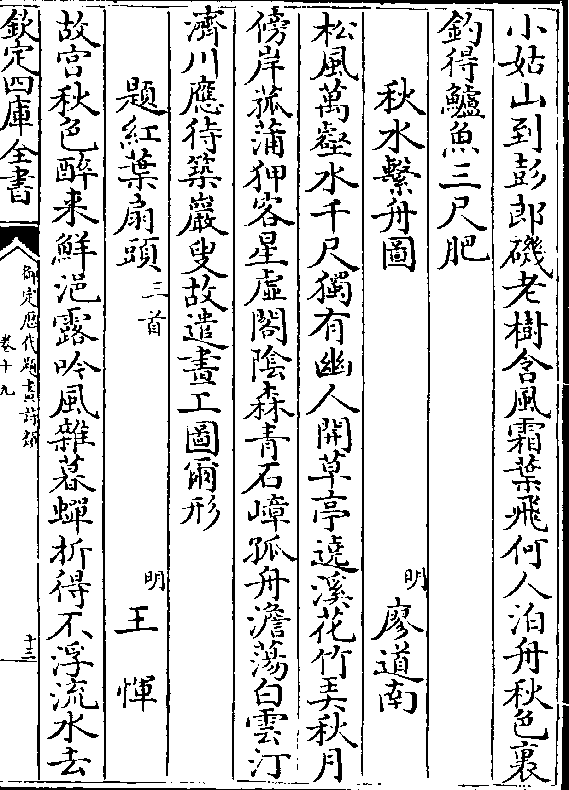 小姑山到彭郎磯老樹含風霜葉飛何人泊舟秋色裏
釣得鱸魚三尺肥
秋水繫舟圖 明 廖道南
松風萬壑水千尺獨有幽人開草亭遶溪花竹弄秋月
傍岸菰蒲狎客星虛閣陰森青石嶂孤舟澹蕩白雲汀
濟川應待築巖叟故遣畫工圖爾形
題紅葉扇頭 三首 明 王惲
故宫秋色醉来鮮浥露吟風雜暮蟬折得不浮流水去
欽定四庫全書
御定歷代題畫詩類
卷十九
十三